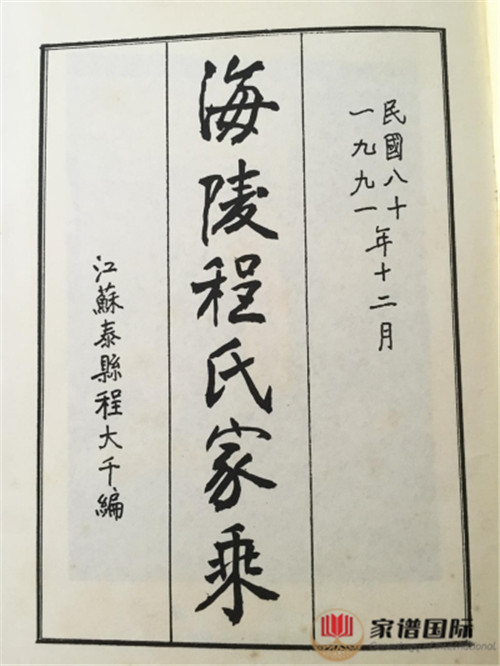 民國八十年十二月
一九九一
海陵程氏家乘
江蘇泰縣程大千編
家谱国际